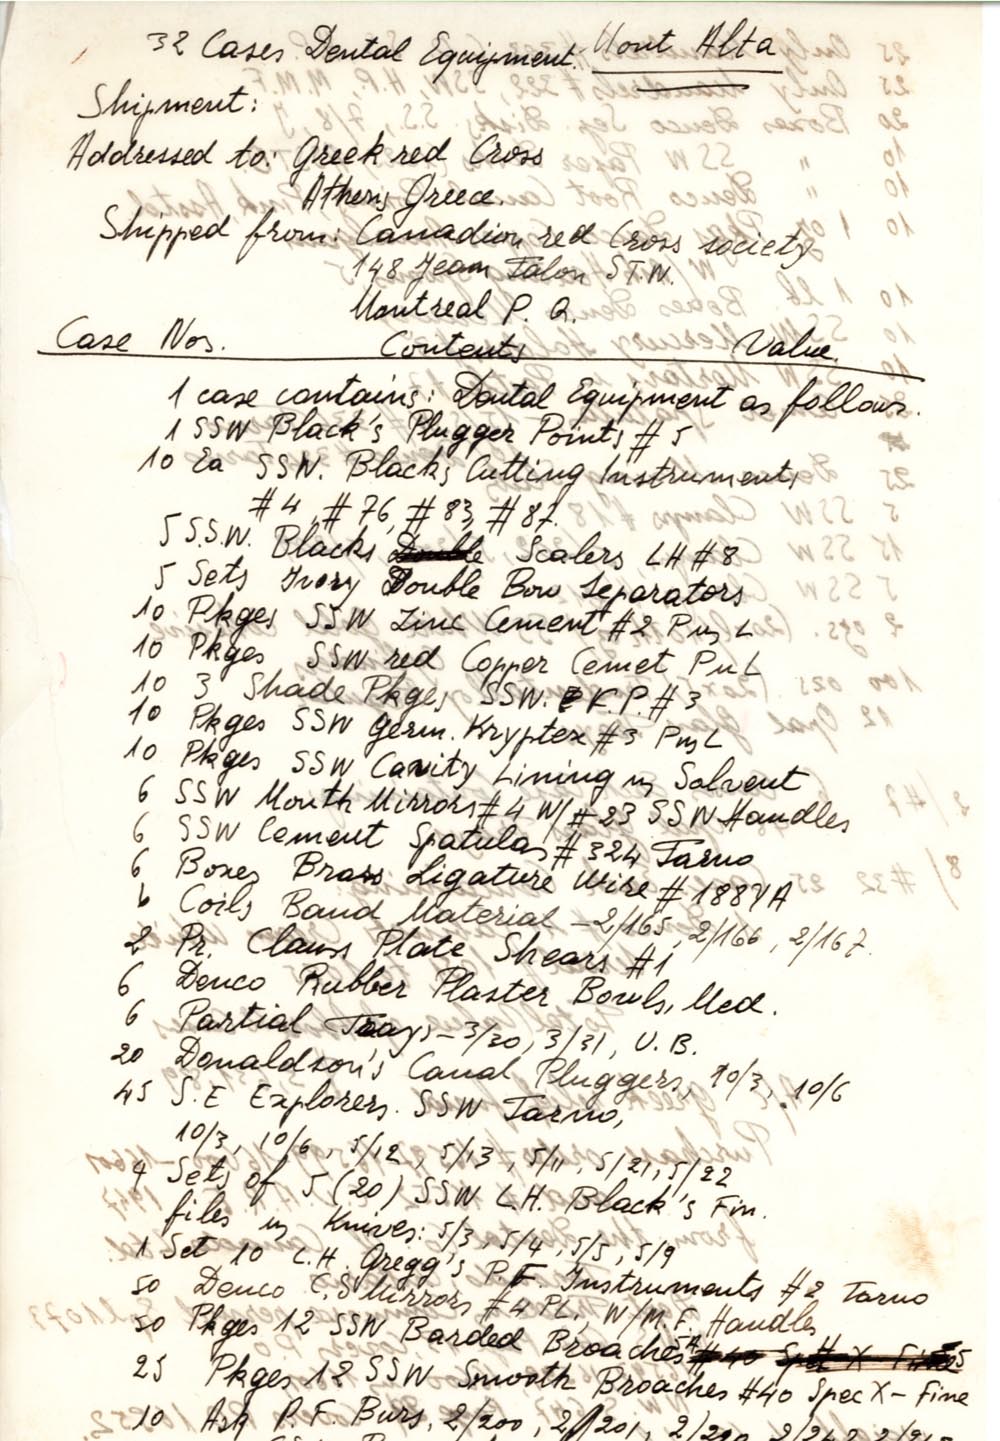 32 Cases Dental Equipment. Mont Alta
Shipment:
Addressed to: Greek red Cross
Athens Greece.
Shipped from: Canadian red Cross society
148 Jean Talon ST. W.
Montreal P. Q.
Case Nos. Contents Value.
1 case contains: Dental Equipment as follows.
1 SSW Black's Plugger Points # 5
10 Ea SSW. Blacks Cutting Instruments
#4, #76, #83, #87.
5 S.S.W. Blacks Double Scalers LH #8
5 Sets Ivory Double Bow Separators
10 Pkges SSW Zinc Cement #2 P L
10 Pkges SSW red Copper Cemet P L
10 3 Shade Pkges SSW. F.P. #3
10 Pkges SSW Germ. Kryptex #3 P L
10 Pkges SSW Cavity Lining Solvent
6 SSW Mouth Mirrors #4 W/ #23 SSW Handles
6 SSW Cement Spatulas #324 Tarno
6 Boxes Brass Ligature Wire # 1887A
6 Coils Band Material - 2/165, 2/166, 2/167.
2 Pr. Claws Plate Shears #1
6 Denco Rubber Plaster Bowls, Med.
6 Partial Trays - 3/30, 3/31, U.B.
20 Donaldson's Canal Pluggers, 10/3, 10/6
45 S.E Explorers. SSW Tarno,
10/3, 10/6, 5/12, 5/13, 5/11, 5/21, 5/22
4 Sets of 5 (20) SSW L.H. Black's Fin.
files Knives: 5/3, 5/4, 5/5, 5/9
1 Set 10 L.H. Gregg's P.F. Instruments #2 Tarno
50 Denco C.S Mirrors #4 PL, W/M.F. Handles
50 Pkges 12 SSW Barded Broaches
25 Pkges 12 SSW Smooth Broaches #40 Spec X-Fine
10 P.F. Burs, 2/200, 2/201,